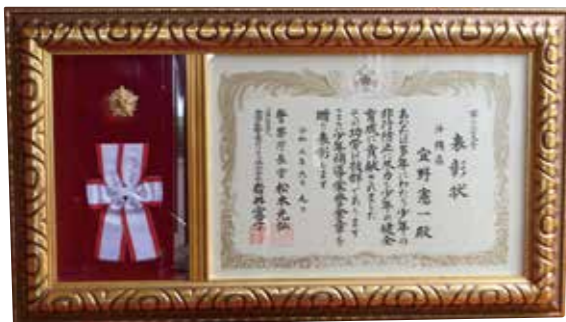 表彰状
沖縄県
宜野憲一殿
あなたは多年にわたり少年の
非行防止に尽力し少年の健全
育成に貢献されました
その功労は抜群であります
よって少年補導栄誉金章を
贈り表彰します
警察庁長官 松本光弘